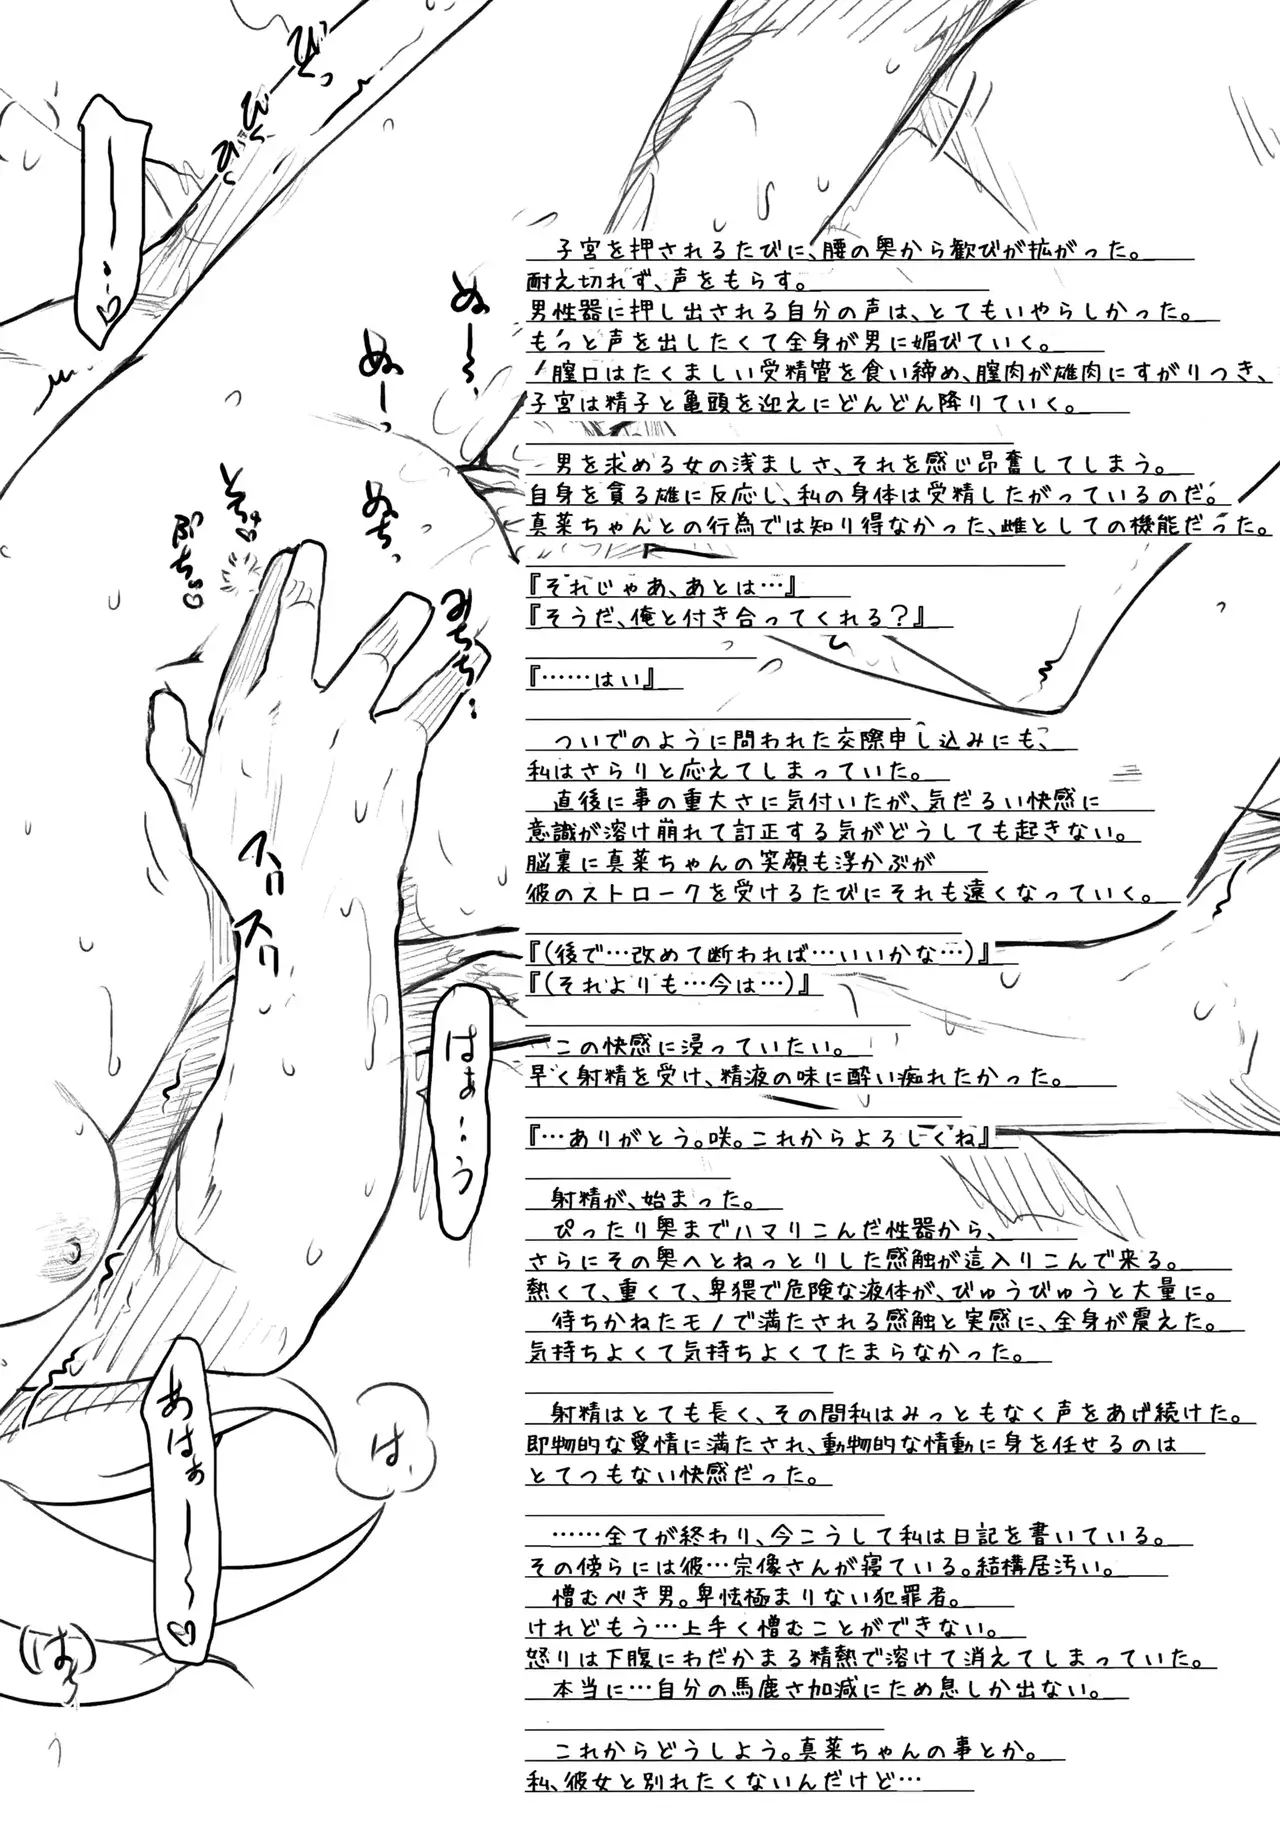 子宮を押されるたびに、腰の奥から歓びが拡がった。
耐え切れず、声をもらす。
男性器に押し出される自分の声は、とてもいやらしかった。
もっと声を出したくて全身が男に媚びていく。
膣口はたくましい受精管を食い締め、膣肉が雄肉にすがりつき、
子宮は精子と亀頭を迎えにどんどん降りていく。
男を求める女の浅ましさ、それを感じ昂奮してしまう。
自身を貪る雄に反応し、私の身体は受精したがっているのだ。
真菜ちゃんとの行為では知り得なかった、雌としての機能だった。
『それじゃあ、あとは…』
『そうだ、俺と付き合ってくれる？』
『……はい』
ついでのように問われた交際申し込みにも、
私はさらりと応えてしまっていた。
直後に事の重大さに気付いたが、気だるい快感に
意識が溶け崩れて訂正する気がどうしても起きない。
脳裏に真菜ちゃんの笑顔も浮かぶが
彼のストロークを受けるたびにそれも遠くなっていく。
『(後で…改めて断われば…いいかな…)』
『(それよりも…今は…)』
この快感に浸っていたい。
早く射精を受け、精液の味に酔い痴れたかった。
『…ありがとう。咲。これからよろしくね』
射精が、始まった。
ぴったり奥までハマりこんだ性器から、
さらにその奥へとねっとりした感触が這入りこんで来る。
熱くて、重くて、卑猥で危険な液体が、びゅうびゅうと大量に。
待ちかねたモノで満たされる感触と実感に、全身が震えた。
気持ちよくて気持ちよくてたまらなかった。
射精はとても長く、その間私はみっともなく声をあげ続けた。
即物的な愛情に満たされ、動物的な情動に身を任せるのは
とてつもない快感だった。
……全てが終わり、今こうして私は日記を書いている。
その傍らには彼…宗像さんが寝ている。結構居汚い。
憎むべき男。卑怯極まりない犯罪者。
けれどもう…上手く憎むことができない。
怒りは下腹にわだかまる精熱で溶けて消えてしまっていた。
本当に…自分の馬鹿さ加減にため息しか出ない。
これからどうしよう。真菜ちゃんの事とか。
私、彼女と別れたくないんだけど…
ぬ〜〜、
ぬーっ
ぬちっ
みちち…
スリ
スリ
はぁ…う
あはぁ〜〜♡
は、